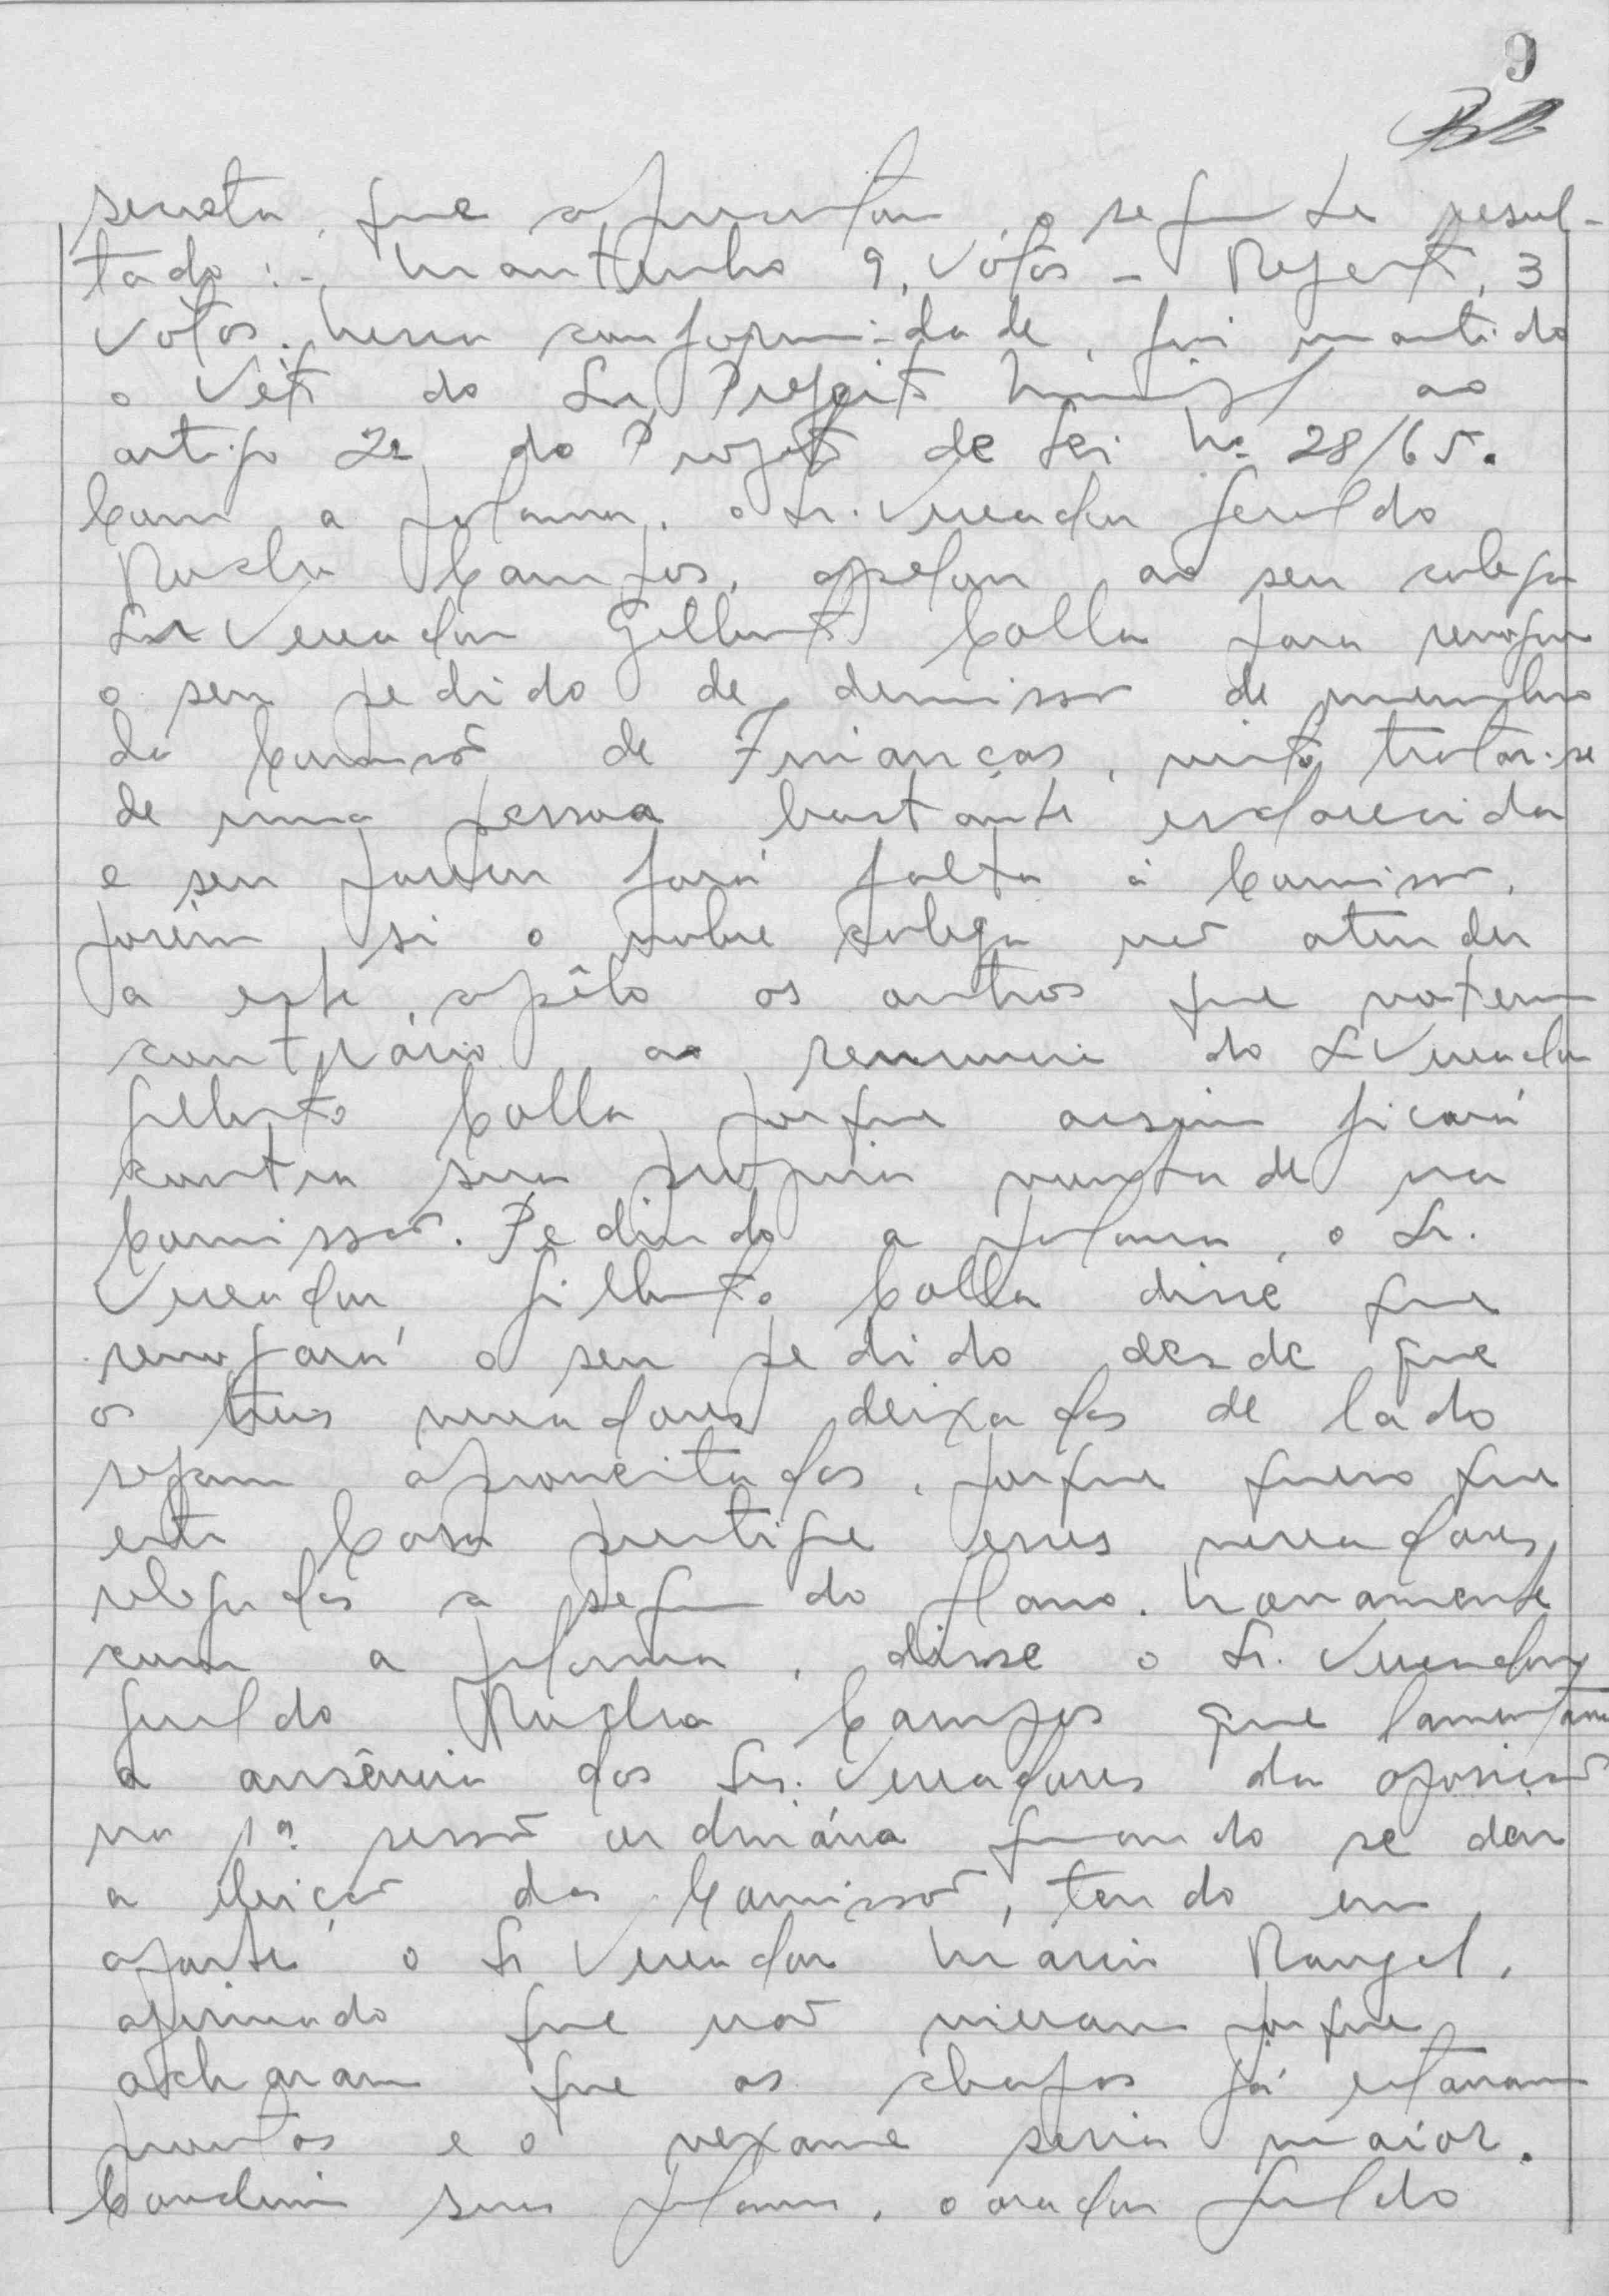 9
secreta, que apresentou o seguinte resul-
tado :- Mantenho 9, votos - Rejeito, 3
votos. Nessa conformidade, foi mantido
o Veto do Sr. Prefeito Municipal ao
artigo 2º do Projeto de Lei Nº 28/65.
Com a palavra, o Sr. Vereador Geraldo
Rocha Campos, apelou ao seu colega
Sr. Vereador Gilberto Colla para revogar
o seu pedido de demissão de membro
da Comissão de Finanças, visto tratar-se
de uma pessoa bastante esclarecida
e seu parecer fará falta à Comissão,
porém, si o nobre colega não atender
a este apêlo os outros que votem
contrário ao renuncia do Sr Vereador
Gilberto Colla, porque assim ficará
contra sua própria vontade na
Comissão. Pedindo a palavra, o Sr.
Vereador Gilberto Colla disse que
revogará o seu pedido desde que
os tres vereadores deixados de lado
sejam aproveitados, porque quero que
esta Casa prestigie esses vereadores,
relegados a segundo plano. Novamente
com a palavra, disse o Sr. Vereador
Geraldo Rocha Campos que lamentava
a ausência dos Srs. Vereadores da oposição
na 1ª sessão ordinária quando se deu
a eleição das Comissões, tendo em
aparte o Sr Vereador Mário Rangel,
afirmado que não vieram porque
acharam que as chapas já estavam
prontas e o vexame seria maior.
Concluiu sua palavra, o orador Geraldo